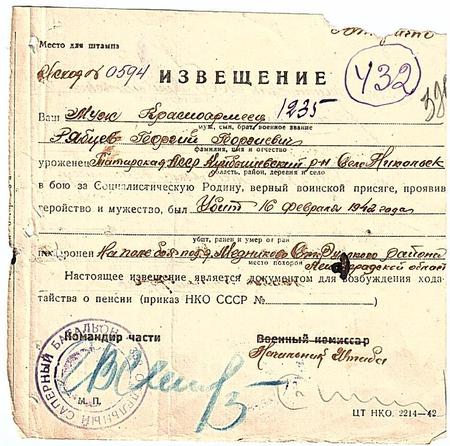 Место для штампа
0594 ИЗВЕЩЕНИЕ 432
Ваш Муж Красноармеец 1235
муж, сын, брат, военное звание
Рябцев Георгий Георгиевич
фамилия, имя и отчество
уроженец Татарская АССР Куйбышевский р-н Село
область, район, деревня и село
в бою за Социалистическую Родину, верный воинской присяге, проявив
геройство и мужество, был Убит 16 февраля 1942 года
убит, ранен и умер от ран
похоронен На поле боя под д. Медниково Ст. Русского района
место похорон Ленинградской област
Настоящее извещение является документом для возбуждения хода-
тайства о пенсии (приказ НКО СССР №
Командир части Военный комиссар
Начальник Штаба
САПЕРНЫЙ БАТАЛЬОН
М. П.
ЦТ НКО. 2214—42